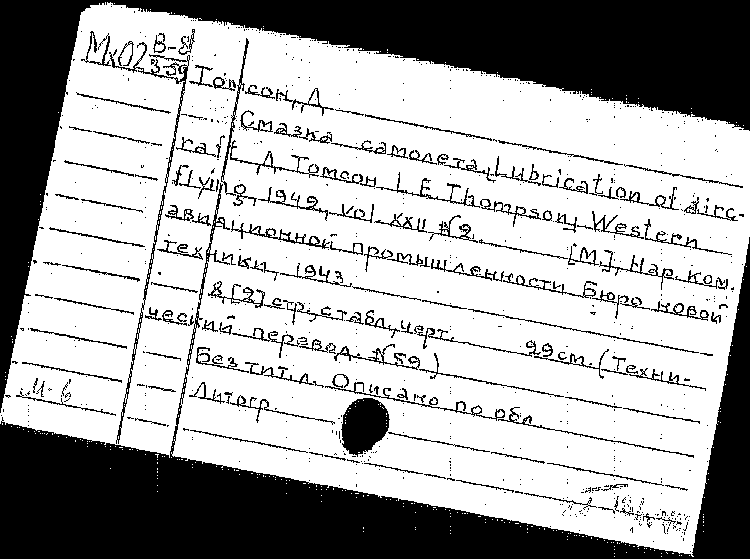 Мх02 В-8
3-59
Томсон, Д
Смазка самолета. [Lubrication of airc-
raft. Д. Томсон [E. Thompson], Western
flying, 1942, vol. XXII, №2. [М.], Нар. ком.
авиационной промышленности Бюро новой
техники, 1943.
8, [2] стр., с табл., черт. 22см. (Техни-
ческий перевод. №59)
Без тит. л. Описано по обл.
Литогр.
М-6